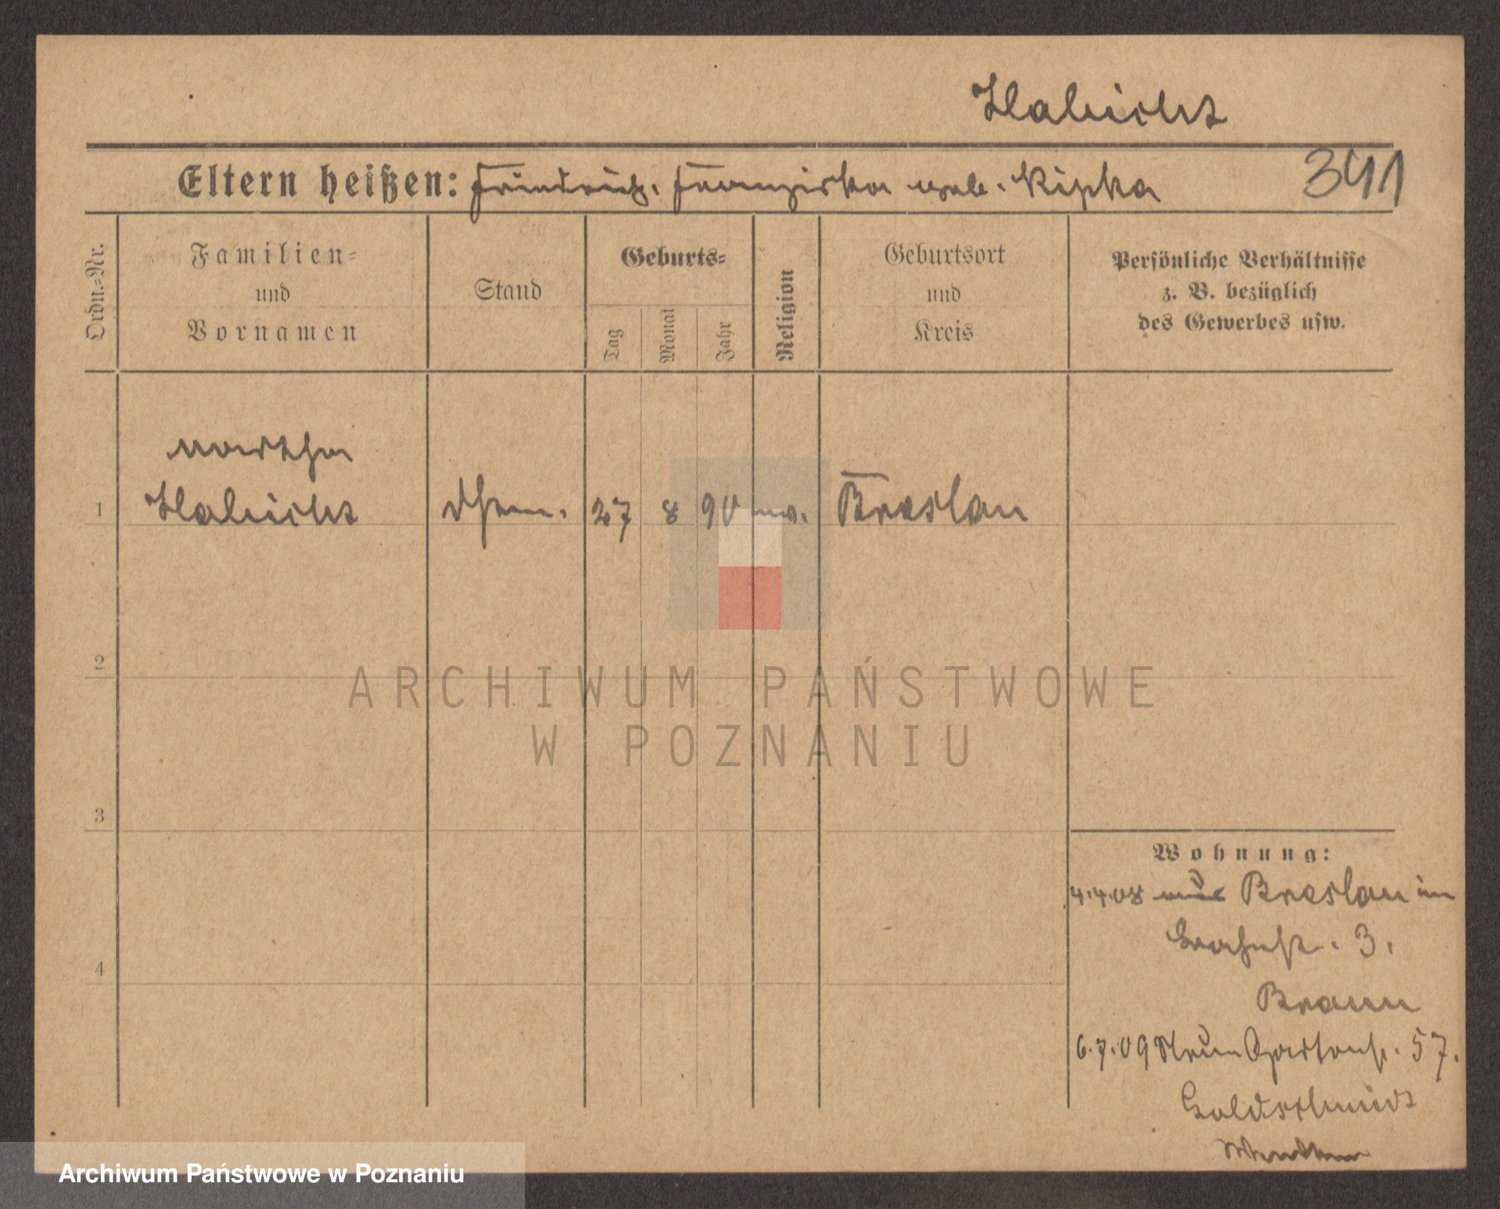 Habicht
Eltern heißen: Friedrich. Franziska geb. Kipka
341
Ordn.-Nr.
Familien-
und
Vornamen
Stand
Geburts-
Tag
Monat
Jahr
Religion
Geburtsort
und
Kreis
Persönliche Verhältnisse
z. B. bezüglich
des Gewerbes usw.
Martha
1 Habicht 27 8 90 Breslau
2
ARCHIWUM PAŃSTWOWE
W POZNANIU
3
4
Wohnung:
4.4.08 aus Breslau in
3.
Braun
6.7.09 Neue Gartenstr. 57.
Goldschmidt
Archiwum Państwowe w Poznaniu